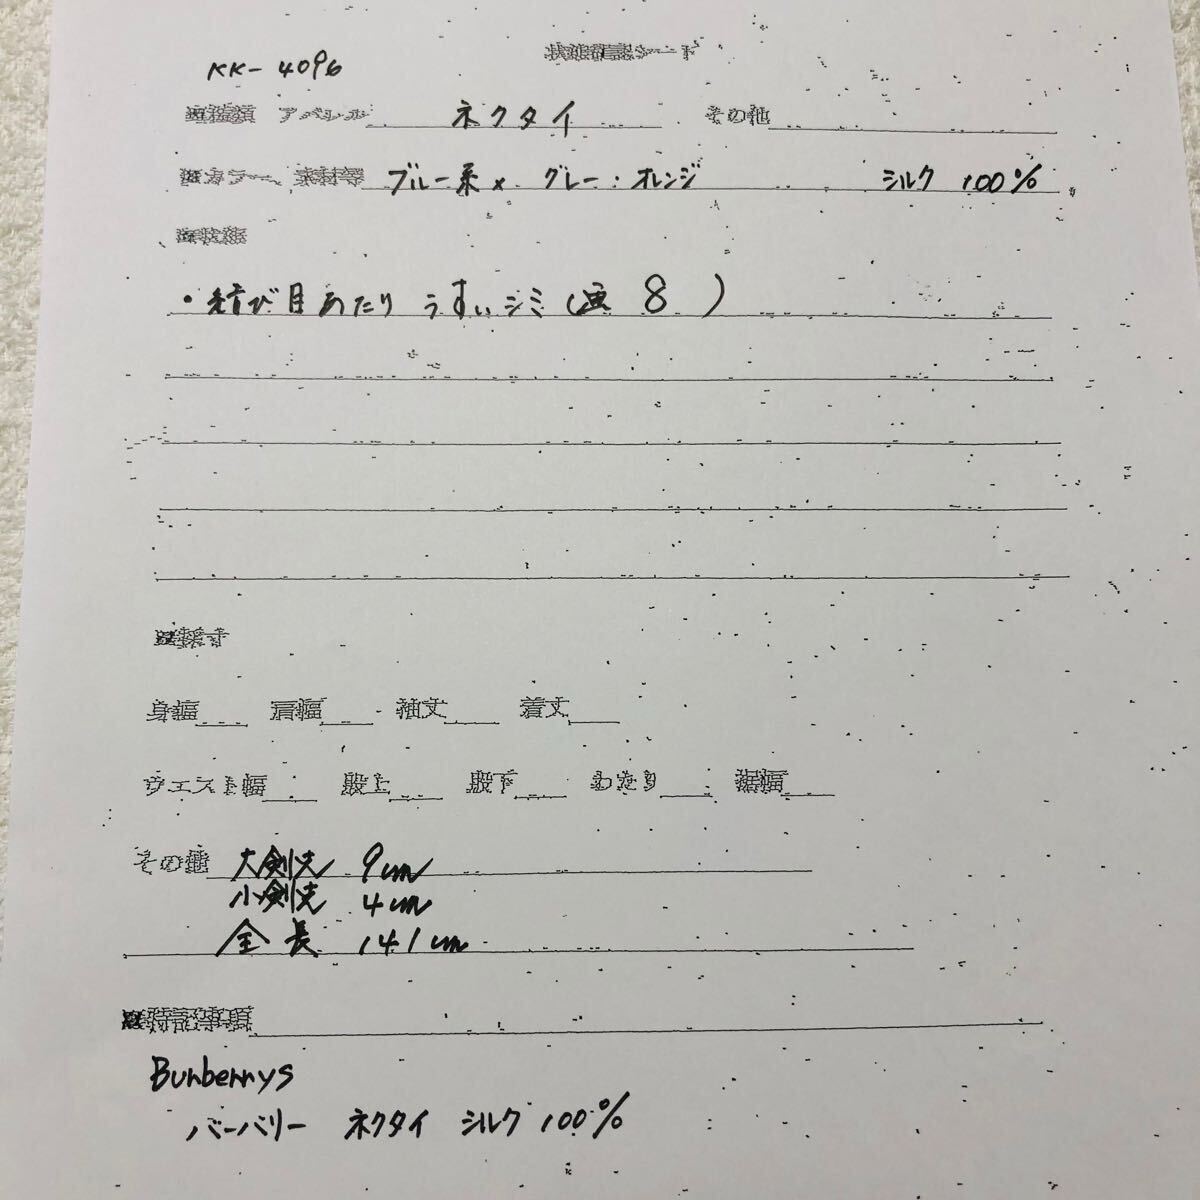 状態確認シート
KK-4096
アパレル ネクタイ その他
カラー、素材等 ブルー系× グレー：オレンジ シルク 100%
状態
・結び目あたり うすいシミ( 8 )
身幅 肩幅 袖丈 着丈
ウエスト幅 股上 股下 わたり 裾幅
その他 大剣先 9cm
小剣先 4cm
全長 141cm
特記事項
Burberrys
バーバリー ネクタイ シルク 100%